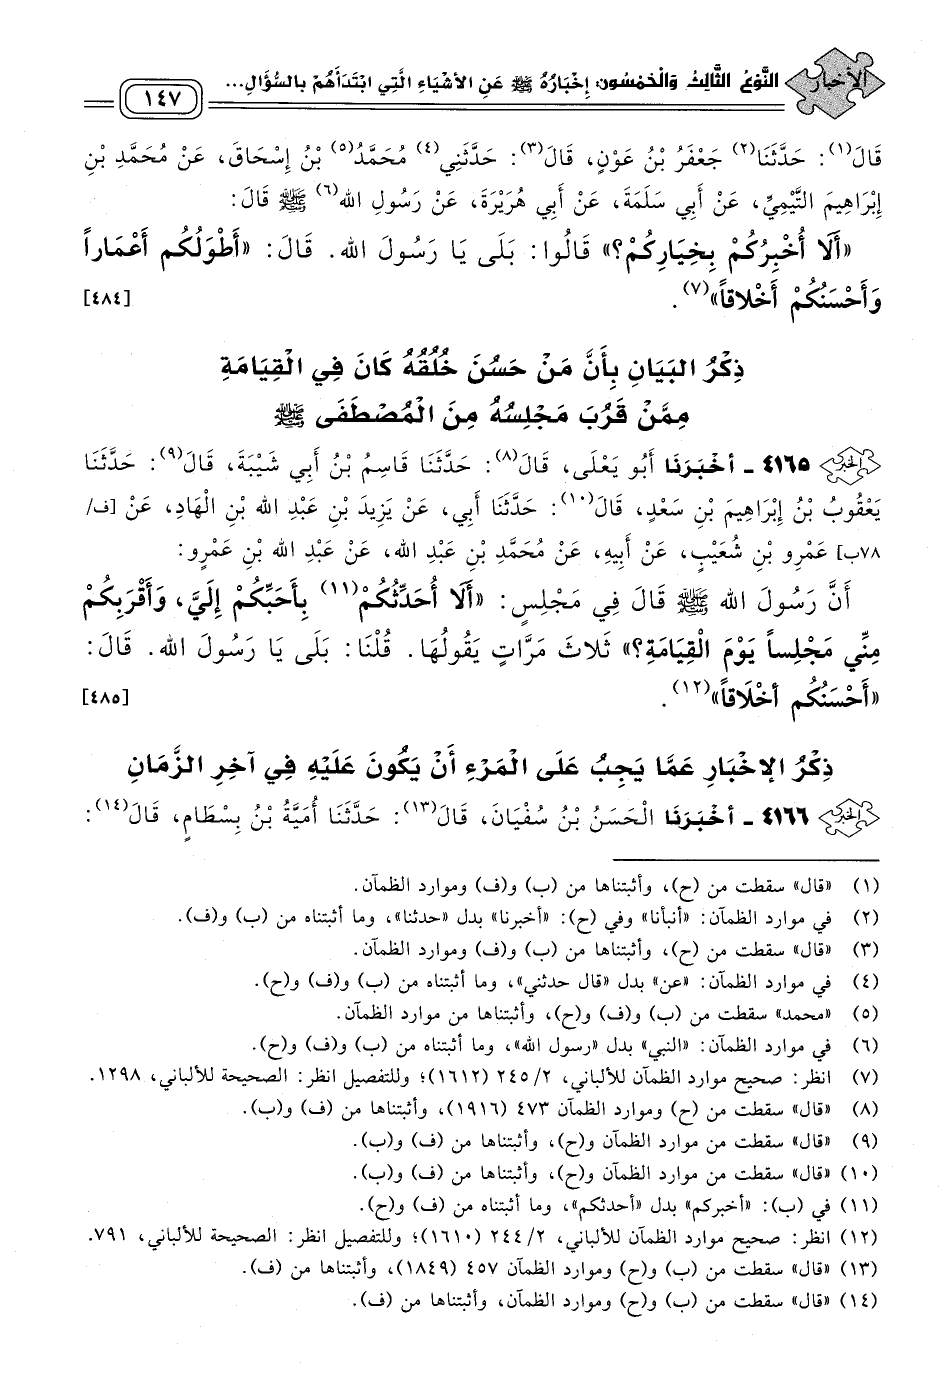 الأخبار
النَّوْعُ الثَّالِثُ وَالْخَمْسُونَ: إِخْبَارُهُ ﷺ عَنِ الأَشْيَاءِ الَّتِي ابْتَدَأَهُمْ بِالسُّؤَالِ...
١٤٧
قَالَ(١): حَدَّثَنَا(٢) جَعْفَرُ بْنُ عَوْنٍ، قَالَ(٣): حَدَّثَنِي(٤) مُحَمَّدُ(٥) بْنُ إِسْحَاقَ، عَنْ مُحَمَّدِ بْنِ
إِبْرَاهِيمَ التَّيْمِيِّ، عَنْ أَبِي سَلَمَةَ، عَنْ أَبِي هُرَيْرَةَ، عَنْ رَسُولِ الله(٦) ﷺ قَالَ:
«أَلَا أُخْبِرُكُمْ بِخِيَارِكُمْ؟» قَالُوا: بَلَى يَا رَسُولَ الله. قَالَ: «أَطْوَلُكُم أَعْمَاراً
وَأَحْسَنُكُمْ أَخْلاقاً»(٧). [٤٨٤]
ذِكْرُ البَيَانِ بِأَنَّ مَنْ حَسُنَ خُلُقُهُ كَانَ فِي الْقِيَامَةِ
مِمَّنْ قَرُبَ مَجْلِسُهُ مِنَ الْمُصْطَفَى ﷺ
الخبر ٤١٦٥ - أخْبَرَنَا أَبُو يَعْلَى، قَالَ(٨): حَدَّثَنَا قَاسِمُ بْنُ أَبِي شَيْبَةَ، قَالَ(٩): حَدَّثَنَا
يَعْقُوبُ بْنُ إِبْرَاهِيمَ بْنِ سَعْدٍ، قَالَ(١٠): حَدَّثَنَا أَبِي، عَنْ يَزِيدَ بْنِ عَبْدِ الله بْنِ الْهَادِ، عَنْ [ف/
٧٨ب] عَمْرِو بْنِ شُعَيْبٍ، عَنْ أَبِيهِ، عَنْ مُحَمَّدِ بْنِ عَبْدِ الله، عَنْ عَبْدِ الله بْنِ عَمْرِو:
أَنَّ رَسُولَ الله ﷺ قَالَ فِي مَجْلِسٍ: «أَلَا أُحَدِّثُكُمْ(١١) بِأَحَبِّكُمْ إِلَيَّ، وَأَقْرَبِكُمْ
مِنِّي مَجْلِساً يَوْمَ الْقِيَامَةِ؟» ثَلاثَ مَرَّاتٍ يَقُولُهَا. قُلْنَا: بَلَى يَا رَسُولَ الله. قَالَ:
«أَحْسَنُكُم أخْلَاقاً»(١٢). [٤٨٥]
ذِكْرُ الإخْبَارِ عَمَّا يَجِبُ عَلَى الْمَرْءِ أَنْ يَكُونَ عَلَيْهِ فِي آخِرِ الزَّمَانِ
الخبر ٤١٦٦ - أخْبَرَنَا الْحَسَنُ بْنُ سُفْيَانَ، قَالَ(١٣): حَدَّثَنَا أُمَيَّةُ بْنُ بِسْطَامٍ، قَالَ(١٤):
(١) «قال» سقطت من (ح)، وأثبتناها من (ب) و(ف) وموارد الظمآن.
(٢) في موارد الظمآن: «أنبأنا» وفي (ح): «أخبرنا» بدل «حدثنا»، وما أثبتناه من (ب) و(ف).
(٣) «قال» سقطت من (ح)، وأثبتناها من (ب) و(ف) وموارد الظمآن.
(٤) في موارد الظمآن: «عن» بدل «قال حدثني»، وما أثبتناه من (ب) و(ف) و(ح).
(٥) «محمد» سقطت من (ب) و(ف) و(ح)، وأثبتناها من موارد الظمآن.
(٦) في موارد الظمآن: «النبي» بدل «رسول الله»، وما أثبتناه من (ب) و(ف) و(ح).
(٧) انظر: صحيح موارد الظمآن للألباني، ٢/ ٢٤٥ (١٦١٢)؛ وللتفصيل انظر: الصحيحة للألباني، ١٢٩٨.
(٨) «قال» سقطت من (ح) وموارد الظمآن ٤٧٣ (١٩١٦)، وأثبتناها من (ف) و(ب).
(٩) «قال» سقطت من موارد الظمآن و(ح)، وأثبتناها من (ف) و(ب).
(١٠) «قال» سقطت من موارد الظمآن و(ح)، وأثبتناها من (ف) و(ب).
(١١) في (ب): «أخبركم» بدل «أحدثكم»، وما أثبتناه من (ف) و(ح).
(١٢) انظر: صحيح موارد الظمآن للألباني، ٢/ ٢٤٤ (١٦١٠)؛ وللتفصيل انظر: الصحيحة للألباني، ٧٩١.
(١٣) «قال» سقطت من (ب) و(ح) وموارد الظمآن ٤٥٧ (١٨٤٩)، وأثبتناها من (ف).
(١٤) «قال» سقطت من (ب) و(ح) وموارد الظمآن، وأثبتناها من (ف).